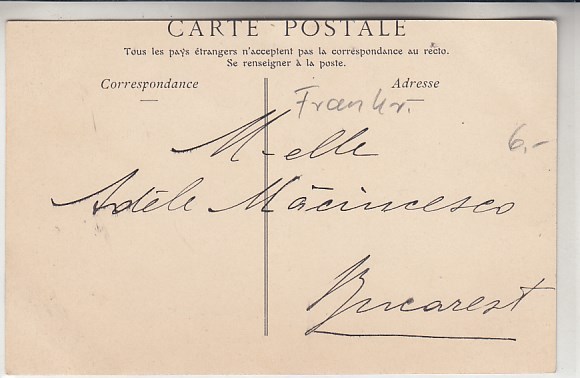 CARTE POSTALE
Tous les pays étrangers n'acceptent pas la correspondance au recto.
Se renseigner à la poste.
Correspondance
Adresse
Frankr.
6,-
M-elle
Adèle Măcincesco
Bucarest